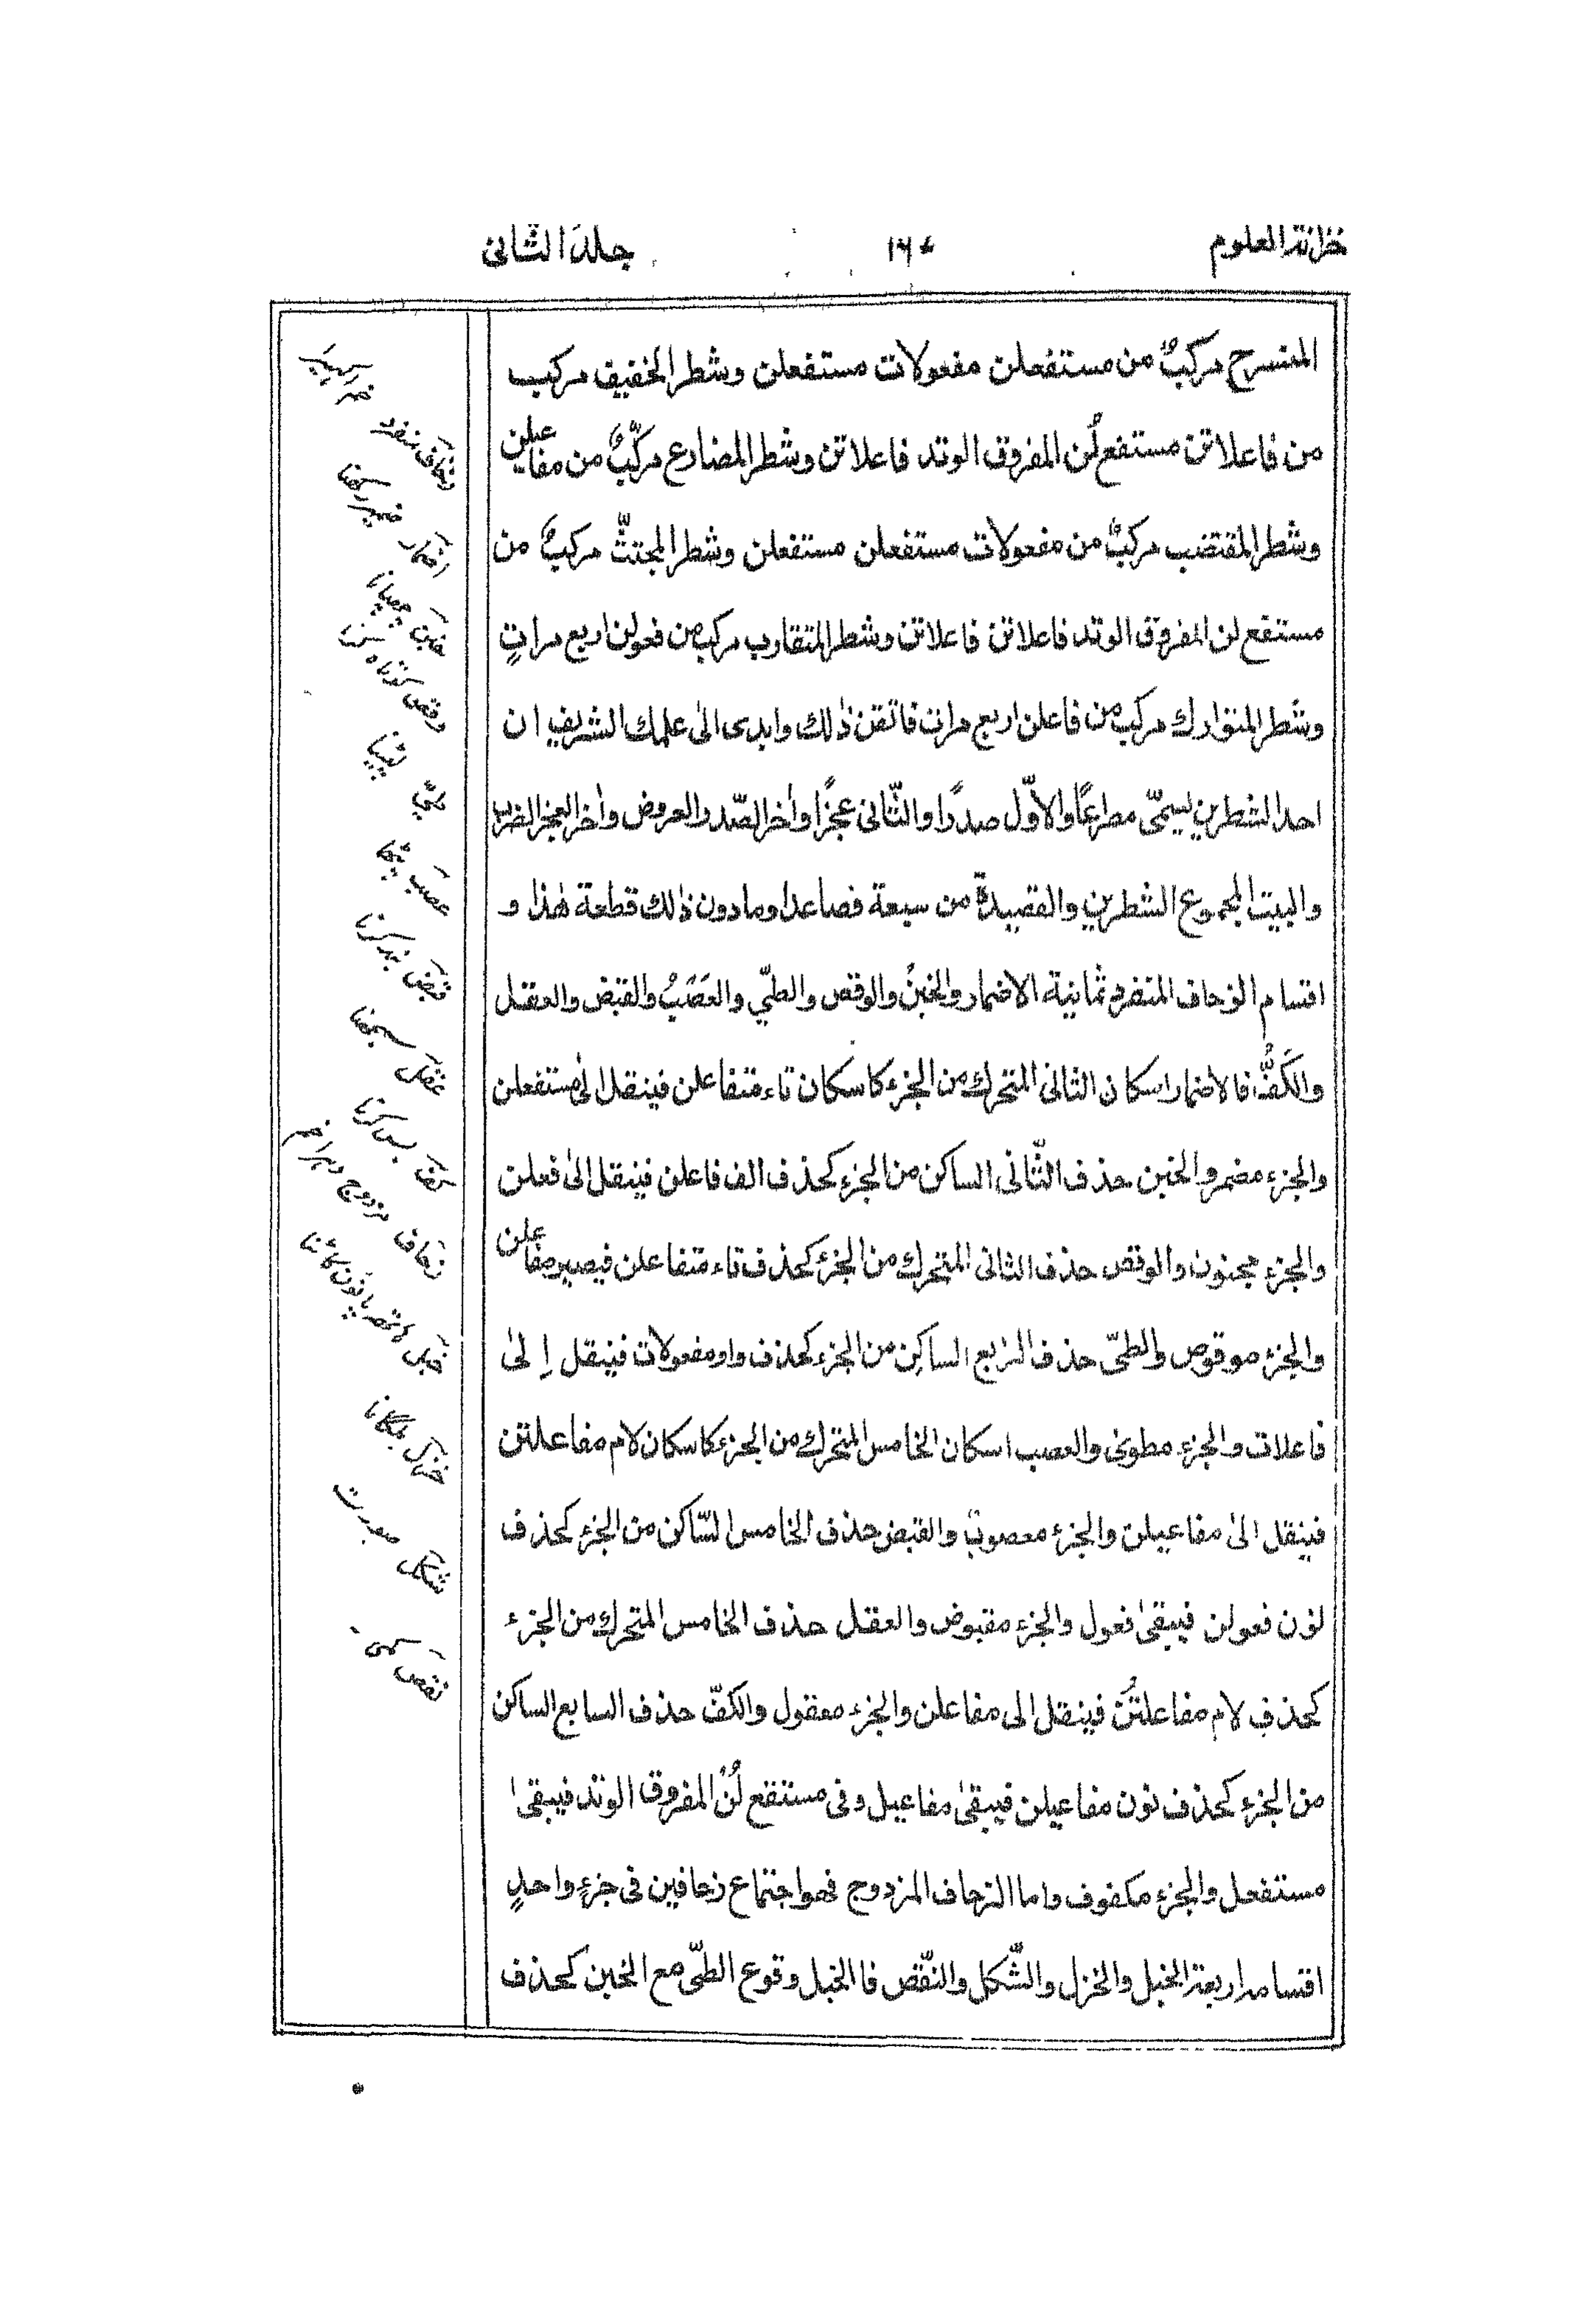 خزانة العلوم
جلد الثانی
المنسرح مرکبٌ من مستفعلن مفعولات مستفعلن وشطر الخفیف مرکب
من فاعلاتن مستفع لُن المفروق الوتد فاعلاتن وشطر المضارع مرکّبٌ من مفاعیلن
وشطر المقتضب مرکبٌ من مفعولات مستفعلن مستفعلن وشطر المجتثّ مرکبٌ من
مستفع لن المفروق الوتد فاعلاتن فاعلاتن وشطر المتقارب مرکب من فعولن اربع مراتٍ
وشطر المتوارك مرکب من فاعلن اربع مرات فاتقن ذٰلك وابدی الیٰ علمك الشریف ان
احد الشطرین یسمّی مصراعًا والاوّل صدرًا والثّانی عجزًا واٰخر الصّدر العروض واٰخر العجز الضرب
والبیت المجموع الشطرین والقصیدة من سبعة فصاعدا ومادون ذٰلك قطعة هٰذا و
اقسام الزحاف المتفرد ثمانیة الاضمار والخبنُ والوقص والطیّ والعَصَبُ والقبض والعقل
والکَفُّ فالاضمار اسکان الثانی المتحرك من الجزء کاسکان تاء متفاعلن فینقل الیٰ مستفعلن
والجزء مضمر والخبن حذف الثّانی الساکن من الجزء کحذف الف فاعلن فینقل الیٰ فعلن
والجزء مجنون والوقص حذف الثانی المتحرك من الجزء کحذف تاء متفاعلن فیصیر مفاعلن
والجزء موقوص والطیّ حذف الرّابع الساکِن من الجزء کحذف واو مفعولات فینقل اِلیٰ
فاعلات والجزء مطوی والعصب اسکان الخامس المتحرك من الجزء کاسکان لام مفاعلتن
فینقل الیٰ مفاعیلن والجزء معصوب والقبض حذف الخامس السّاکن من الجزء کحذف
نون فعولن فیبقیٰ فعول والجزء مقبوض والعقل حذف الخامس المتحرك من الجزء
کحذف لام مفاعلتُن فینقل الی مفاعلن والجزء معقول والکفّ حذف السابع الساکن
من الجزء کحذف نون مفاعیلن فیبقیٰ مفاعیل وفی مستفع لُنْ المفروق الوتد فیبقیٰ
مستفعل والجزء مکفوف واما الزحاف المزدوج فهو اجتماع زحافین فی جزءٍ واحدٍ
اقسامه اربعة الخبل والخزل والشّکل والنّقص فالخبل وقوع الطیّ مع الخبن کحذف
زحاف منفرد
خبن
وقص
طیّ
عصب
قبض بند کرنا
عقل سمجھنا
کف
زحاف مزدوج
خبل
خزل
شکل صورت
نقص کمی